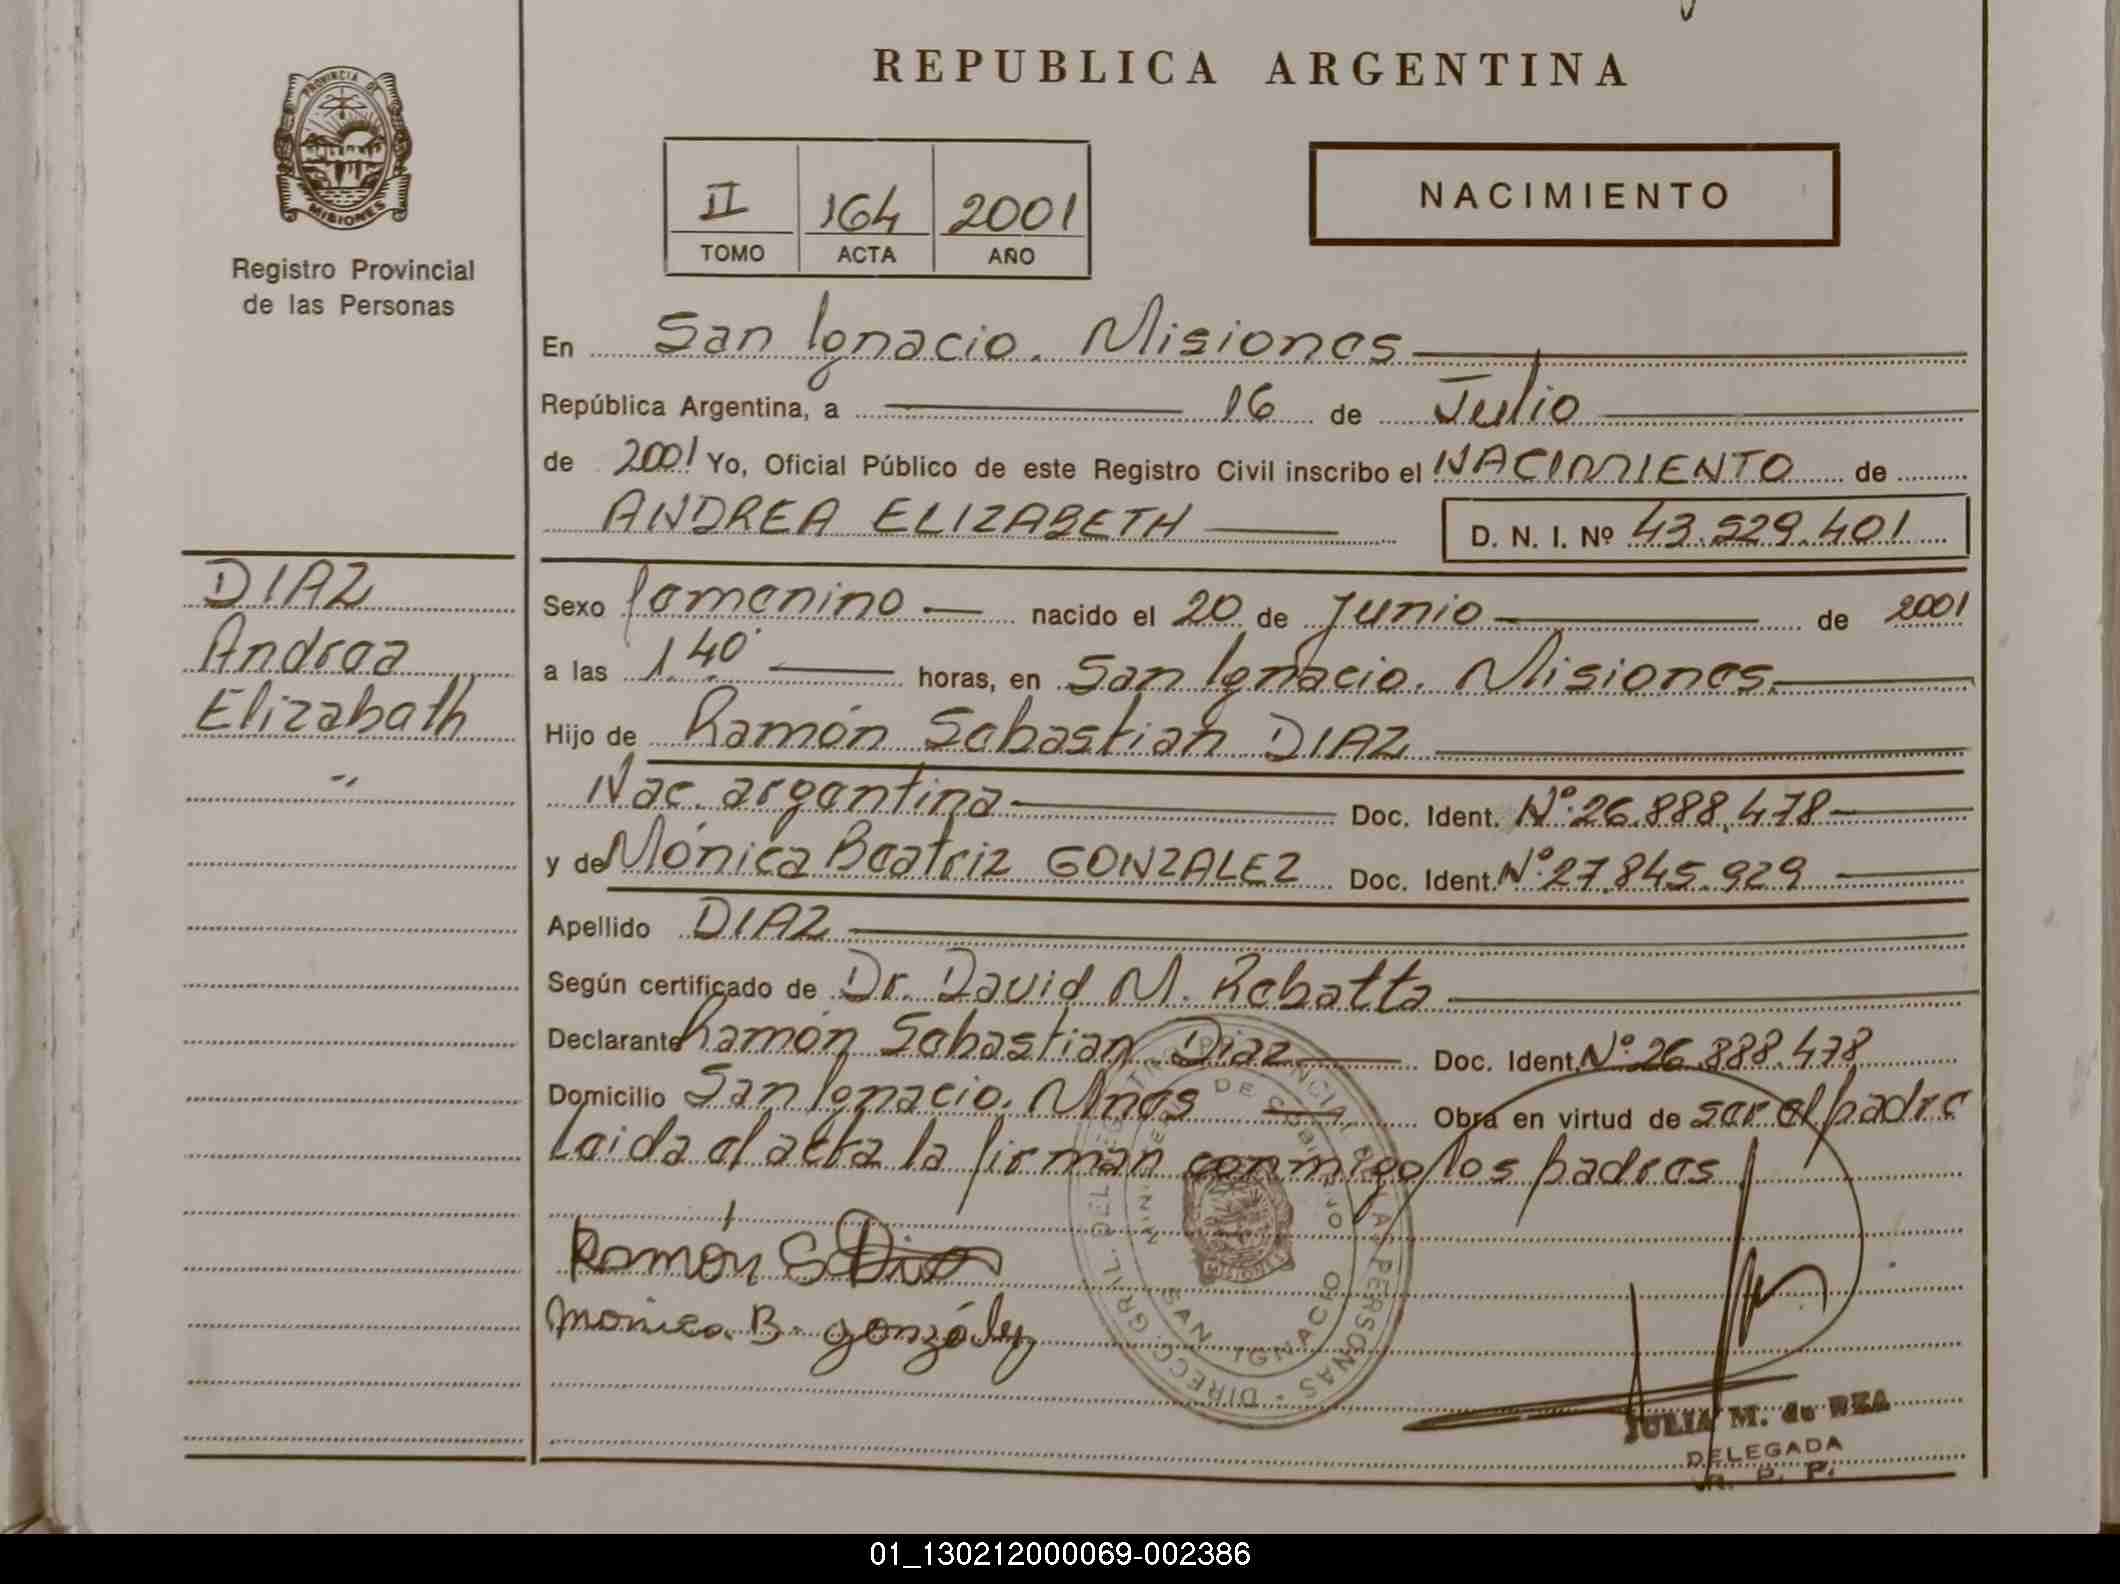 REPUBLICA ARGENTINA
PROVINCIA DE
MISIONES
Registro Provincial
de las Personas
II 164 2001
TOMO ACTA AÑO
NACIMIENTO
En San Ignacio. Misiones
República Argentina, a 16 de Julio
de 2001 Yo, Oficial Público de este Registro Civil inscribo el NACIMIENTO de
ANDREA ELIZABETH D. N. I. Nº 43.529.401
DIAZ
Andrea
Elizabeth
Sexo femenino nacido el 20 de Junio de 2001
a las 1.40' horas, en San Ignacio. Misiones.
Hijo de Ramón Sebastian DIAZ
Nac. argentina Doc. Ident. Nº.26.888.478
y de Mónica Beatriz GONZALEZ Doc. Ident. Nº.27.845.929
Apellido DIAZ
Según certificado de Dr. David M. Rebatta
Declarante Ramón Sebastian Diaz Doc. Ident. Nº.26.888.478
Domicilio San Ignacio. Mnes Obra en virtud de ser el padre
Leida el acta la firman conmigo los padres
Ramón S Diaz
Monica B. gonzález
SAN IGNACIO
MISIONES
JULIA M. de REA
DELEGADA
R. P. P.
01_130212000069-002386